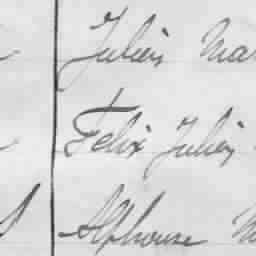 Julien Ma
Felix Julien
Alphonse